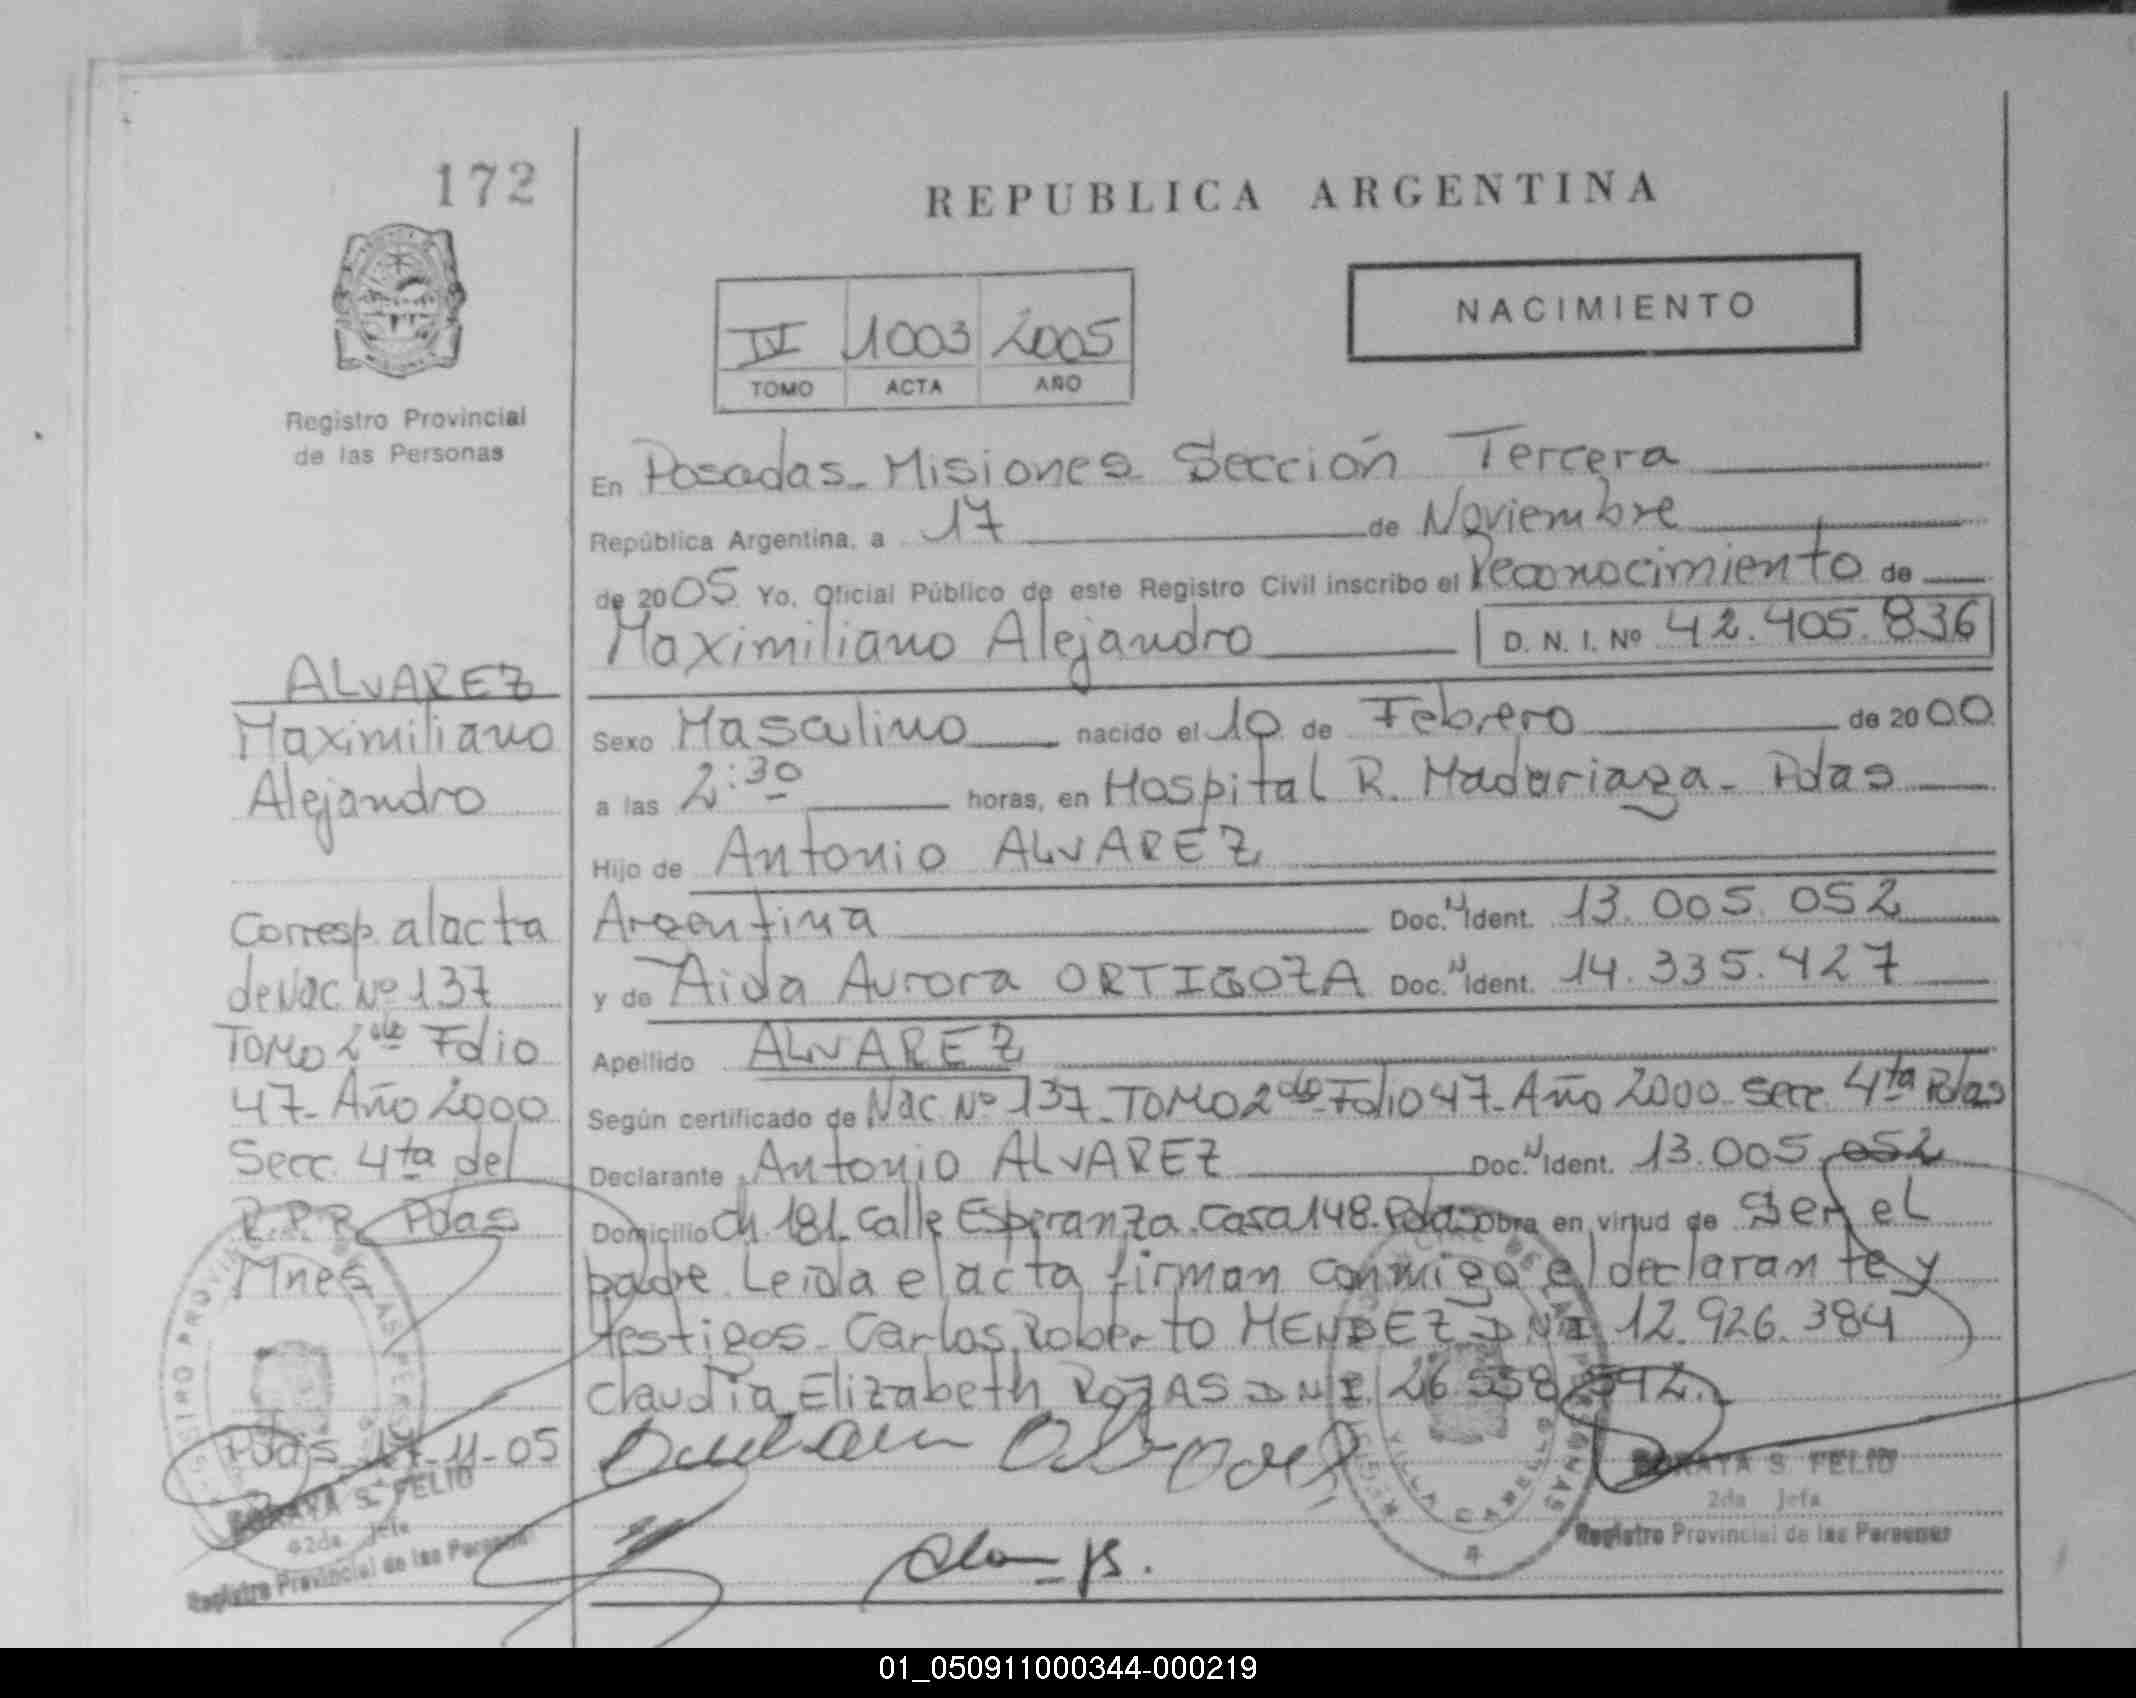 172
REPUBLICA ARGENTINA
NACIMIENTO
IV 1003 2005
TOMO ACTA AÑO
Registro Provincial
de las Personas
En Posadas - Misiones Sección Tercera
República Argentina, a 17 de Noviembre
de 2005 Yo, Oficial Público de este Registro Civil inscribo el Reconocimiento de
Maximiliano Alejandro D. N. I. Nº 42.405.836
Sexo Masculino nacido el 10 de Febrero de 2000
a las 2:30 horas, en Hospital R. Madariaga - Pdas
Hijo de Antonio ALVAREZ
Argentina Doc. N Ident. 13.005.052
y de Aida Aurora ORTIGOZA Doc. N Ident. 14.335.427
Apellido ALVAREZ
Según certificado de Nac Nº 137 - TOMO 2do - Folio 47 - Año 2000 - Secc 4ta Pdas
Declarante Antonio ALVAREZ Doc. N Ident. 13.005.052
Domicilio Ch 181 Calle Esperanza. Casa 148. Pdas obra en virtud de Ser el
padre Leida el acta firman conmigo el declarante y
testigos - Carlos Roberto MENDEZ DNI 12.926.384
Claudia Elizabeth ROJAS DNI 26.558.592.
ALVAREZ
Maximiliano
Alejandro
Corresp. al acta
de Nac Nº 137
TOMO 2do Folio
47 - Año 2000
Secc. 4ta del
R.P.P. Pdas
Mnes
Pdas 17-11-05
SORAYA S. FELIO
2da Jefa
Registro Provincial de las Personas
SORAYA S. FELIO
2da Jefa
Registro Provincial de las Personas
01_050911000344-000219